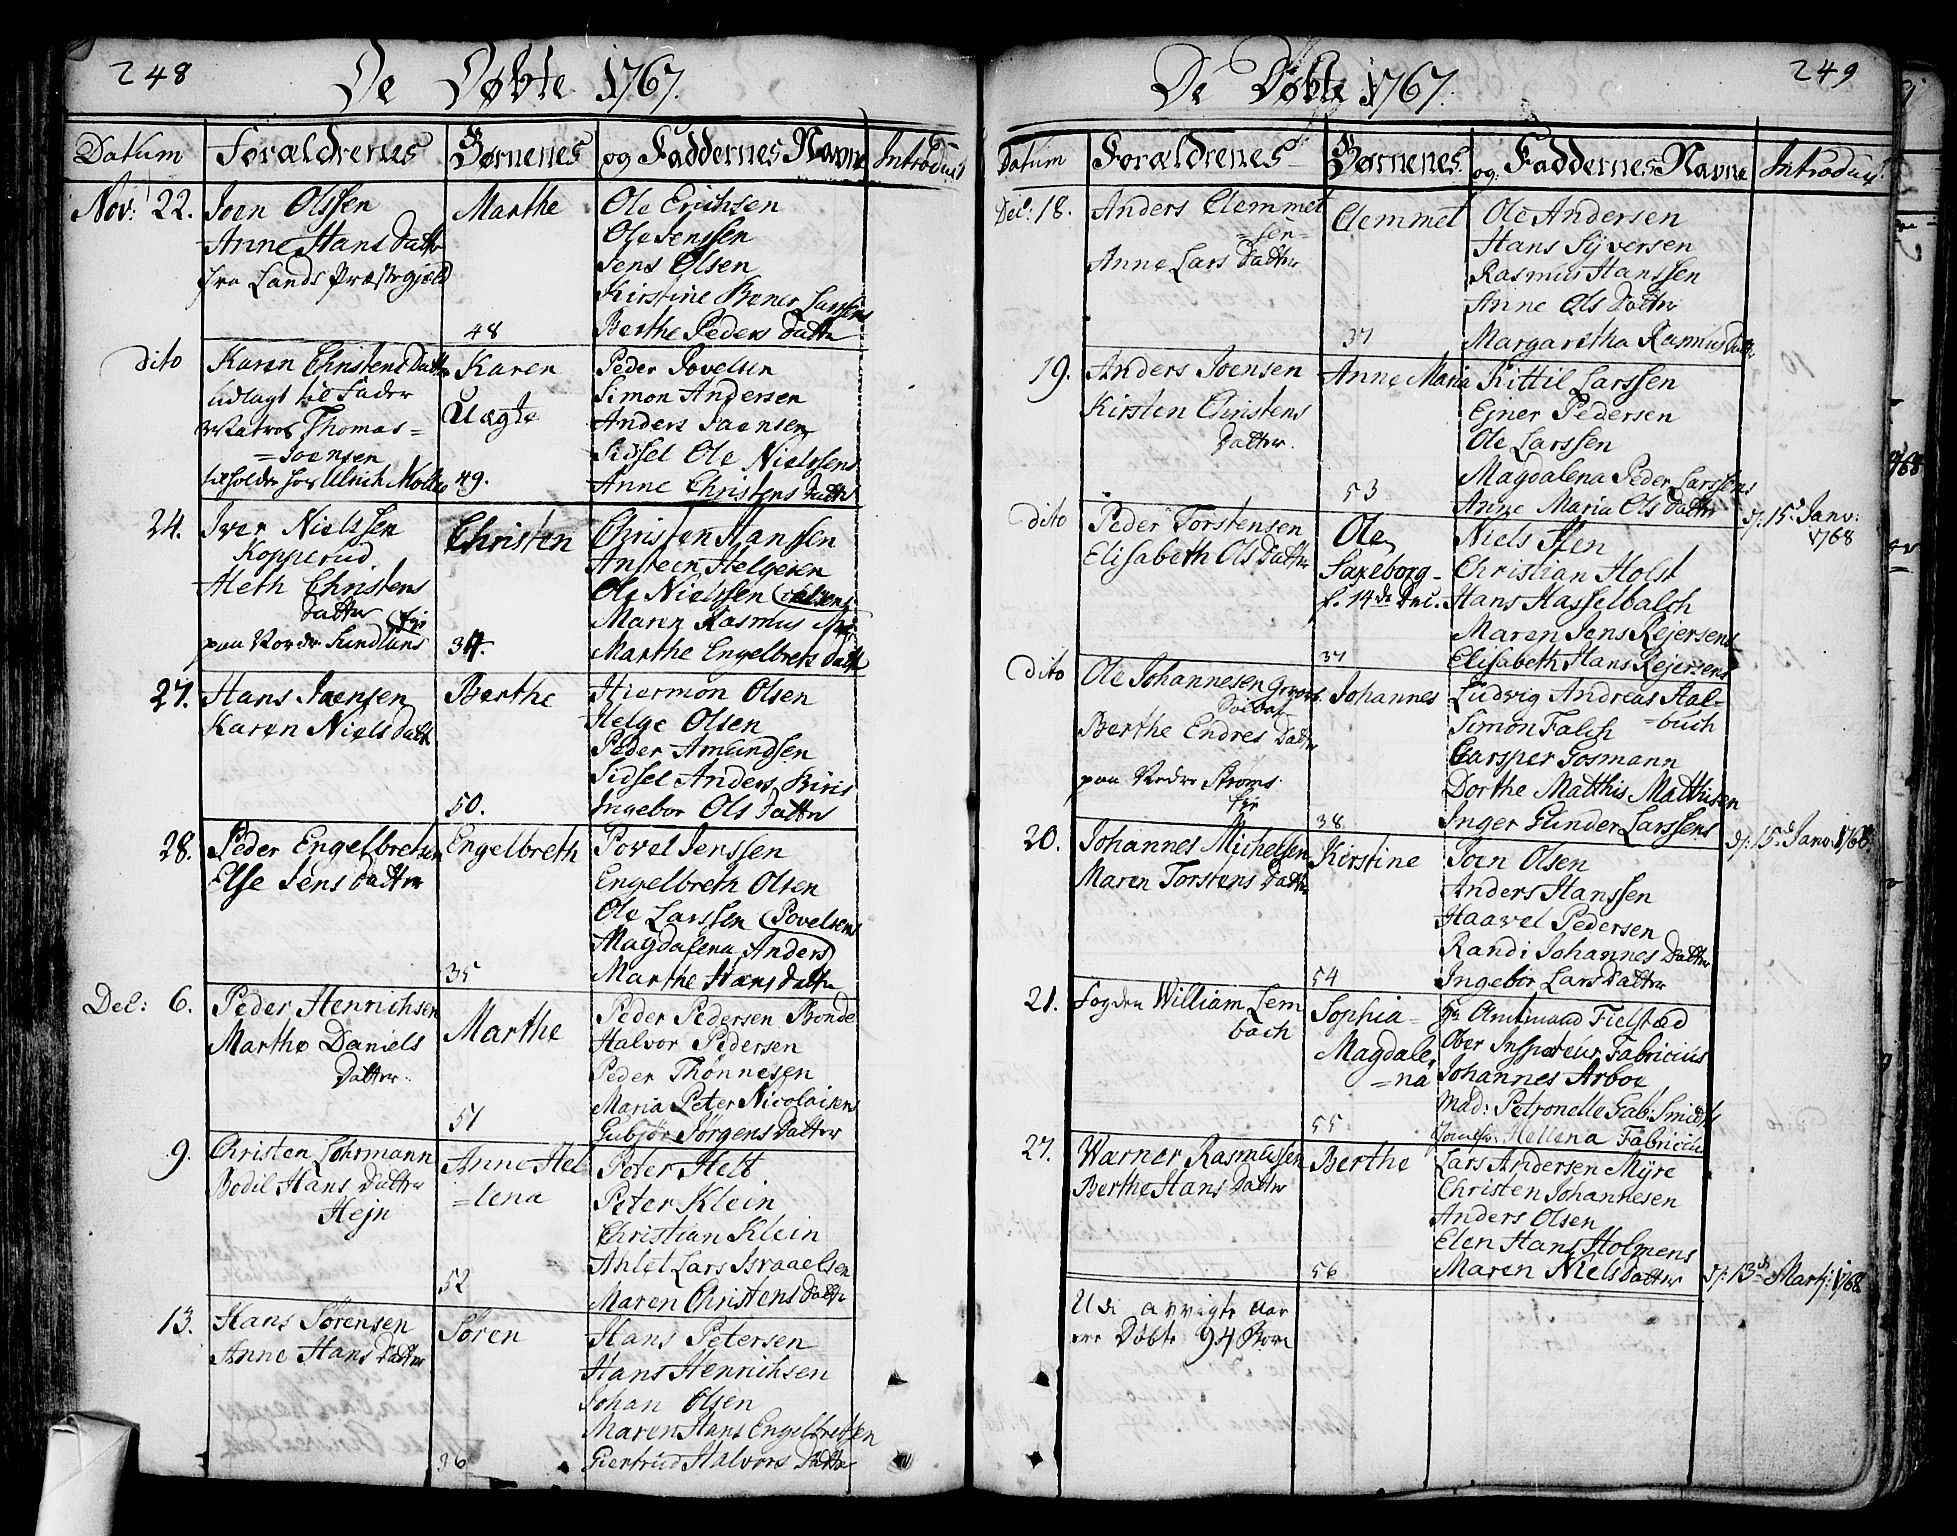 248
De Døbte 1767.
Datum Forældrenes Børnenes og Faddernes Navne Introduct
Nov: 22. Joen Olssen
Anne Hans Datter
fra Lands Præstegjeld
Marthe
48
Ole Erichsen
Ole Jenssen
Jens Olsen
Kirstine Bener Larssens
Berthe Peders Datter
dito
Karen Christens Datter
udlagt til Fader
Matros Thomas=
=Joensen
Karen
Uægte
49.
Peder Povelsen
Simon Andersen
Anders Joensen
Sidsel Ole Nielssens
Anne Christens Datter
24. Iver Nielssen
Kopperud.
Aleth Christens
Datter
Christen
34.
Christen Hanssen
Ansteen Helgesen
Ole Nielssen
Maren Rasmus
Marthe Engelbrets Datter
27. Hans Joensen
Karen Niels Datt
Berthe
50.
Hiermon Olsen
Helge Olsen
Peder Amundsen
Sidsel Anders Biris
Ingebor Ols Datter
28. Peder Engelbretsen
Else Jens Datter
Engelbreth
35
Povel Jenssen
Engelbreth Olsen
Ole Larssen (Povelsens
Magdalena Anders
Marthe Hans Datter
Dec: 6. Peder Henrichsen
Marthe Daniels
Datter.
Marthe
51
Peder Pedersen Bonde
Halvor Pedersen
Peder Thönnesen
Maria Peter Nicolaisens
Gubjør Jörgens Datter
9. Christen Lohrmann
Bodil Hans Datter
Hejn
Anne Hel
=lena
52
Peter Helt
Peter Klein
Christian Klein
Ahlet Lars Israaelsen
Maren Christens Datter
13. Hans Sørensen
Anne Hans Datter
Søren
36
Hans Petersen
Hans Henrichsen
Johan Olsen
Maren Hans Engelbretsen
Giertrud Halvors Datter
249
De Døbte 1767.
Datum Forældrenes Børnenes og Faddernes Navne Introduct.
Dec: 18. Anders Clemmet
=sen=
Anne Lars Datter
Clemmet
37
Ole Andersen
Hans Syversen
Rasmus Hanssen
Anne Ols Datter
Margaretha Rasmus Datter
19. Anders Joensen
Kirsten Christens
Datter.
Anne Maria
53
Kittil Larssen
Ejner Pedersen
Ole Larssen
Magdalena Peder Larssens
Anne Maria Ols Datter
dito Peder Torstensen
Elisabeth Ols Datter
Ole
Saxeborg-
f. 14de Dec.
37
Niels Sten
Christian Holst
Hans Hasselbalch
Maren Jens Rejersens
Elisabeth Hans Rejersens
15d Janv:
1768
dito Ole Johannesen
Berthe Endres Datter
paa Nedre Stroms
Eje
Johannes
38
Ludvig Andreas Aal-
=buch
Simon Falch
Carsper Gosmann
Dorthe Matthis Matthisen
Inger Gunder Larssens
15d Janv: 1768
20. Johannes Michelsen
Maren Torstens Datter
Kirstine
54
Joen Olsen
Anders Hanssen
Haavel Pedersen
Randi Johannes Datter
Ingebor Lars Datter
21. Fogden William Lem
bach
Sophia=
Magdale
=na
55
Hr Amtmand Fielsted
Ober Inspecteur Fabricius
Johannes Arboe
Mad: Petronelle Gab: Smidts
Jomfr: Hellena Fabricius
27. Warner Rasmussen
Berthe Hans Datter
Berthe
56
Lars Andersen Myre
Christen Johannesen
Anders Olsen
Elen Hans Holmens
Maren Niels Datter
13d Marti 1768
Udi avvigte Aar
ere Døbte 94 Børn